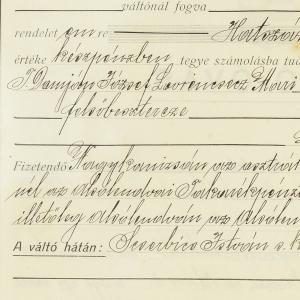 váltónál fogva
rendelet em re Hatszáz
értéke készpénzben tegye számolásba tud
T. Damján József Lovrencsecz Mari
felsőbesztercze
Fizetendő Nagykanizsán az osztrák
nel az Alsólendvai Takarékpénz
illetőleg Alsólendván az Alsólen
A váltó hátán: Scserbics István s. k